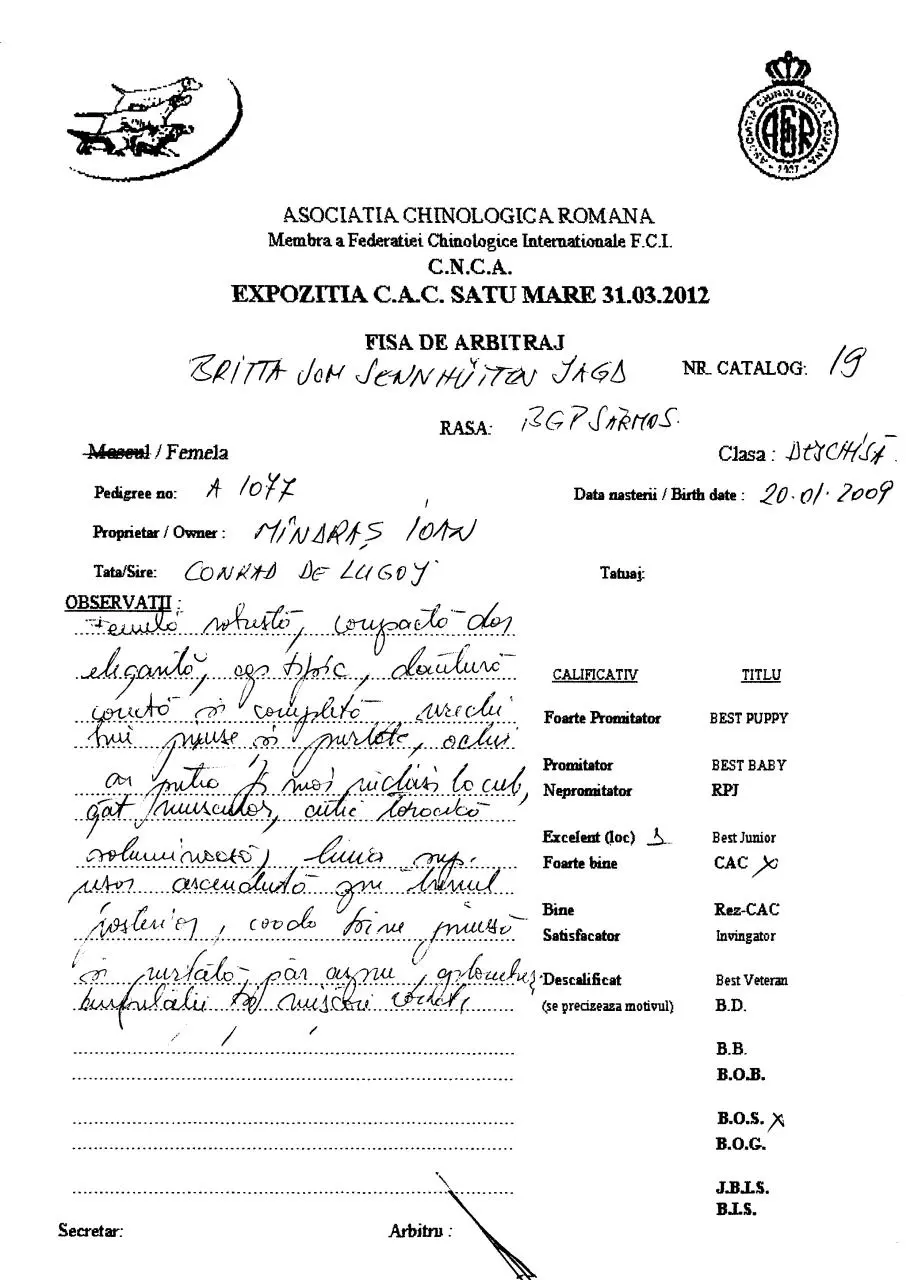 ASOCIATIA CHINOLOGICA ROMANA
ASOCIATIA CHINOLOGICA ROMANA
Membra a Federatiei Chinologice Internationale F.C.I.
C.N.C.A.
EXPOZITIA C.A.C. SATU MARE 31.03.2012
FISA DE ARBITRAJ
BRITTA VOM SENNHÜTTEN JAGD NR. CATALOG: 19
RASA: BGP SÂRMOS.
Mascul / Femela Clasa : DESCHISĂ
Pedigree no: A 1077 Data nasterii / Birth date : 20.01.2009
Proprietar / Owner : MÎNDRAȘ IOAN
Tata/Sire: CONRAD DE LUGOJ Tatuaj:
OBSERVATII :
Femelă robustă, compactă dar
elegantă, cap tipic, dantură
corectă și completă urechi
bine prinse și purtate, ochii
ar putea fi mai închiși la cul,
gât musculos, cutie toracică
voluminoasă, linia sup.
ușor ascendentă
posterior, coada bine prinsă
și purtată, păr aspru,
mișcări corecte,
CALIFICATIV TITLU
Foarte Promitator BEST PUPPY
Promitator BEST BABY
Nepromitator RPJ
Excelent (loc) 1 Best Junior
Foarte bine CAC X
Bine Rez-CAC
Satisfacator Invingator
Descalificat Best Veteran
(se precizeaza motivul) B.D.
B.B.
B.O.B.
B.O.S. X
B.O.G.
J.B.I.S.
B.I.S.
Secretar: Arbitru :